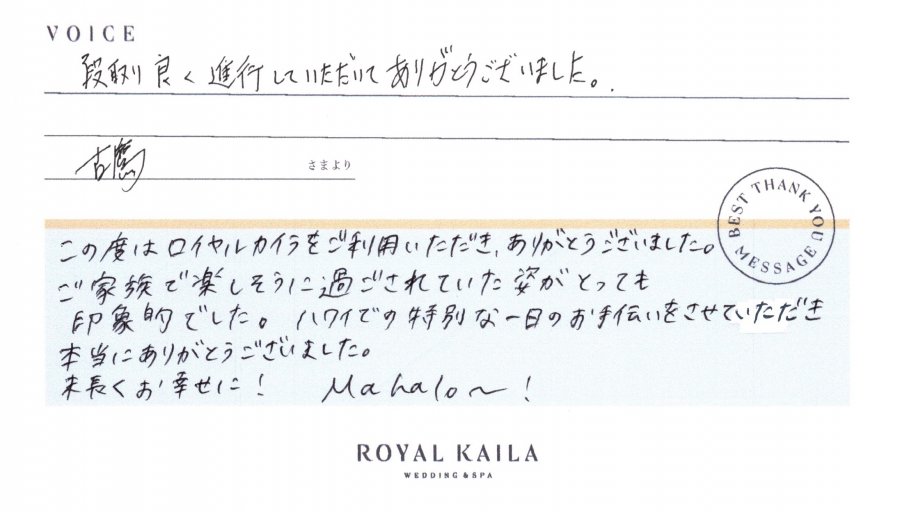 VOICE
段取り良く進行していただいてありがとうございました。
古鷹
さまより
BEST THANK YOU MESSAGE
この度はロイヤルカイラをご利用いただき、ありがとうございました。
ご家族で楽しそうに過ごされていた姿がとっても
印象的でした。ハワイでの特別な一日のお手伝いをさせていただき
本当にありがとうございました。
末長くお幸せに! Mahalo~!
ROYAL KAILA
WEDDING & SPA